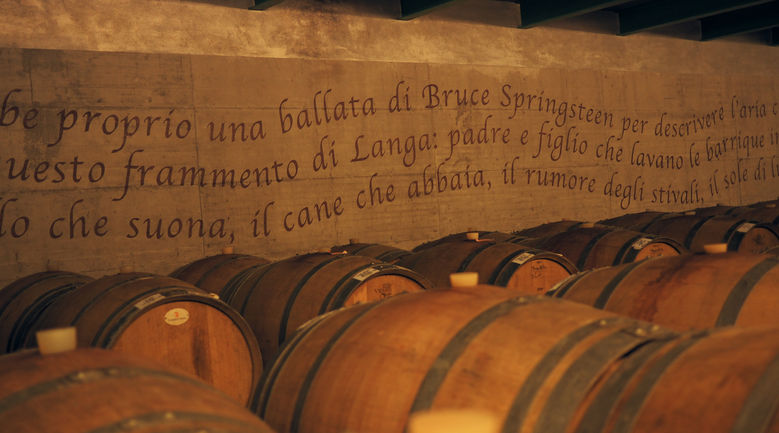 be proprio una ballata di Bruce Springsteen per descrivere l'aria
uesto frammento di Langa: padre e figlio che lavano le barrique in
lo che suona, il cane che abbaia, il rumore degli stivali, il sole di